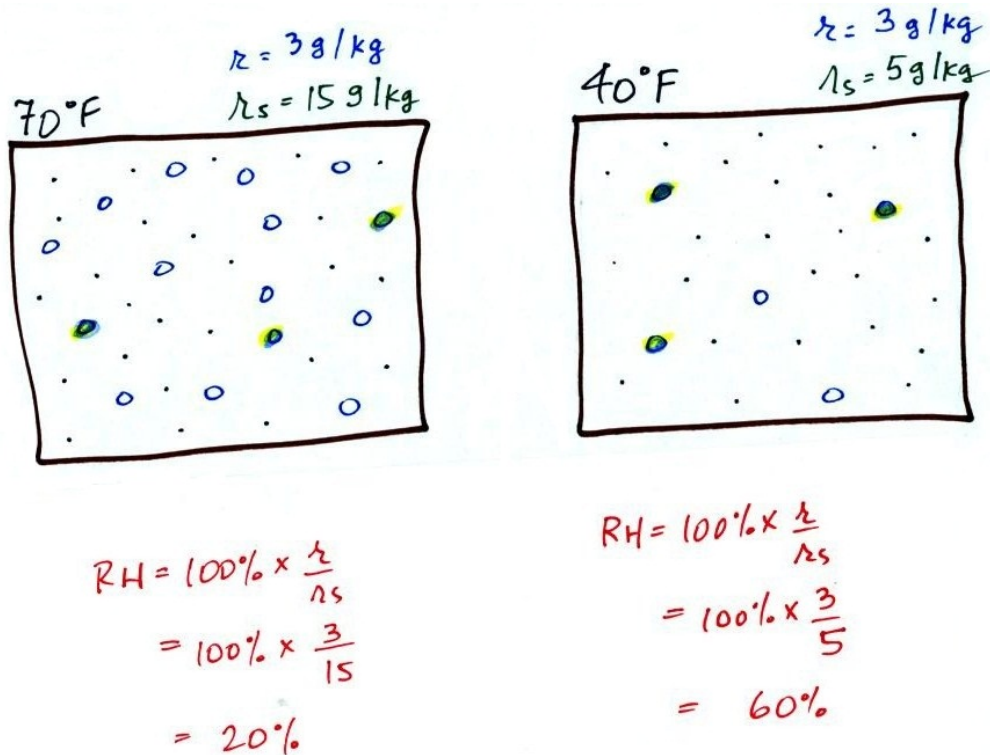 r = 3 g/kg
rs = 15 g/kg
70°F
RH = 100% × r/rs
= 100% × 3/15
= 20%
r = 3 g/kg
rs = 5 g/kg
40°F
RH = 100% × r/rs
= 100% × 3/5
= 60%